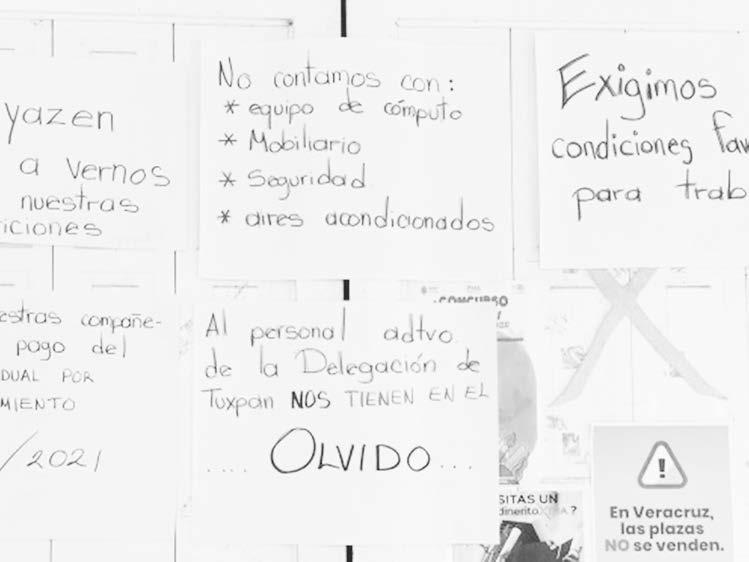 yazen
a vernos
nuestras
iciones
No contamos con:
* equipo de cómputo
* Mobiliario
* Seguridad
* aires acondicionados
Exigimos
condiciones fav
para trab
estras compañe-
pago del
DUAL POR
MIENTO
/2021
Al personal adtvo.
de la Delegación de
Tuxpan NOS TIENEN EN EL
.... OLVIDO...
CONCURSO
SITAS UN
dinerito EXTRA?
En Veracruz,
las plazas
NO se venden.